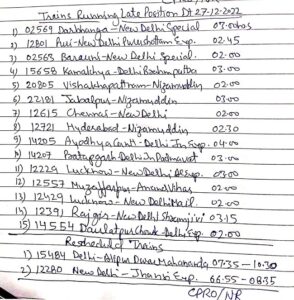 Trains Running Late Position Dt 27-12-2022
1) 02569 Darbhanga - New Delhi Special 07.00hrs
2) 12801 Puri - New Delhi Purushottam Exp. 02.45
3) 02563 Barauni - New Delhi Special. 02.00
4) 15658 Kamakhya - Delhi Brahmputra 03.00
5) 20805 Vishakhapattnam - Nizamuddin 02.00
6) 22181 Jabalpur - Nizamuddin 03.00
7) 12615 Chennai - New Delhi 02.00
8) 12721 Hyderabad - Nizamuddin 02.30
9) 14205 Ayodhya Cantt - Delhi Jn Exp. 04.00
10) 14207 Pratapgarh Delhi Jn Padmavat 03.00
11) 12229 Lucknow - New Delhi Exp. 03.00
12) 12557 Muzaffarpur - Anand Vihar 02.00
13) 12429 Lucknow - New Delhi Mail. 02.00
14) 12391 Rajgir - New Delhi Shramjivi 03.15
15) 14554 Daulatpur Chowk - Delhi Exp. 02.00
Rescheduled Trains
1) 15484 Delhi - Alipur Dwar Mahananda 07.35 - 10.30
2) 12280 New Delhi - Jhansi Exp. 06.55 - 08.35
CPRO/NR